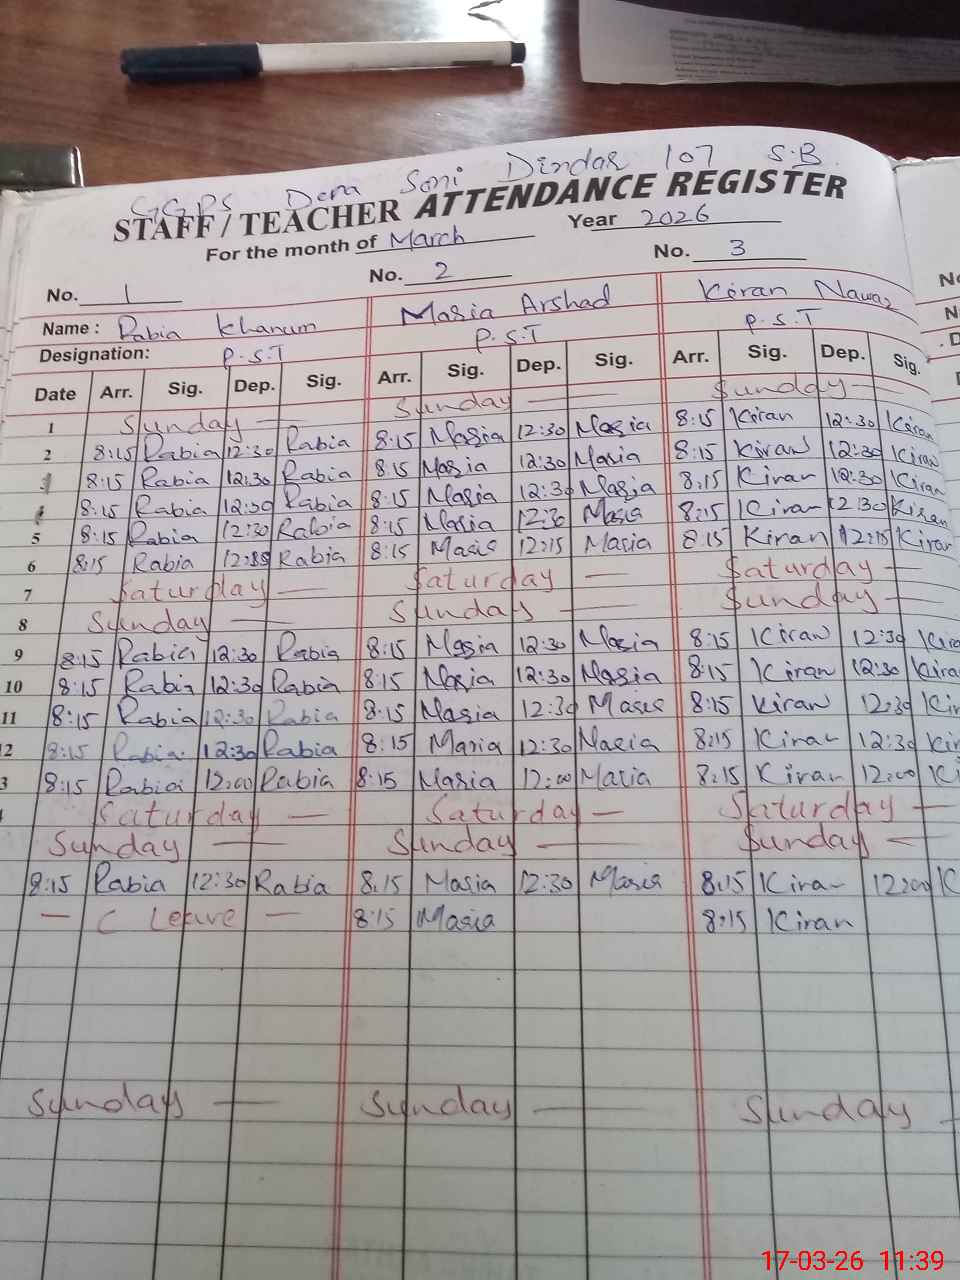 GGPS Dera Soni Dindar 107 S.B
STAFF / TEACHER ATTENDANCE REGISTER
For the month of March Year 2026
No. 1 No. 2 No. 3
Name : Rabia Khanum Maria Arshad Kiran Nawaz
Designation: P.S.T P.S.T P.S.T
Date Arr. Sig. Dep. Sig. Arr. Sig. Dep. Sig. Arr. Sig. Dep. Sig.
1 Sunday — Sunday — Sunday —
2 8:15 Rabia 12:30 Rabia 8:15 Maria 12:30 Maria 8:15 Kiran 12:30 Kiran
8:15 Rabia 12:30 Rabia 8:15 Maria 12:30 Maria 8:15 Kiran 12:30 Kiran
8:15 Rabia 12:30 Rabia 8:15 Maria 12:30 Maria 8:15 Kiran 12:30 Kiran
5 8:15 Rabia 12:30 Rabia 8:15 Maria 12:30 Maria 8:15 Kiran 12:30 Kiran
6 8:15 Rabia Rabia 8:15 Maria 12:15 Maria 8:15 Kiran 12:15 Kiran
7 Saturday — Saturday — Saturday —
8 Sunday — Sunday — Sunday —
9 8:15 Rabia 12:30 Rabia 8:15 Maria 12:30 Maria 8:15 Kiran 12:30
10 8:15 Rabia 12:30 Rabia 8:15 Maria 12:30 Maria 8:15 Kiran 12:30
11 8:15 Rabia 12:30 Rabia 8:15 Maria 12:30 Maria 8:15 Kiran 12:30
2 8:15 Rabia 12:30 Rabia 8:15 Maria 12:30 Maria 8:15 Kiran 12:30
3 8:15 Rabia 12:00 Rabia 8:15 Maria 12:00 Maria 8:15 Kiran 12:00
Saturday — Saturday — Saturday —
Sunday — Sunday — Sunday —
8:15 Rabia 12:30 Rabia 8:15 Maria 12:30 Maria 8:15 Kiran 12:00
— C Leave — 8:15 Maria 8:15 Kiran
Sunday — Sunday — Sunday —
17-03-26 11:39